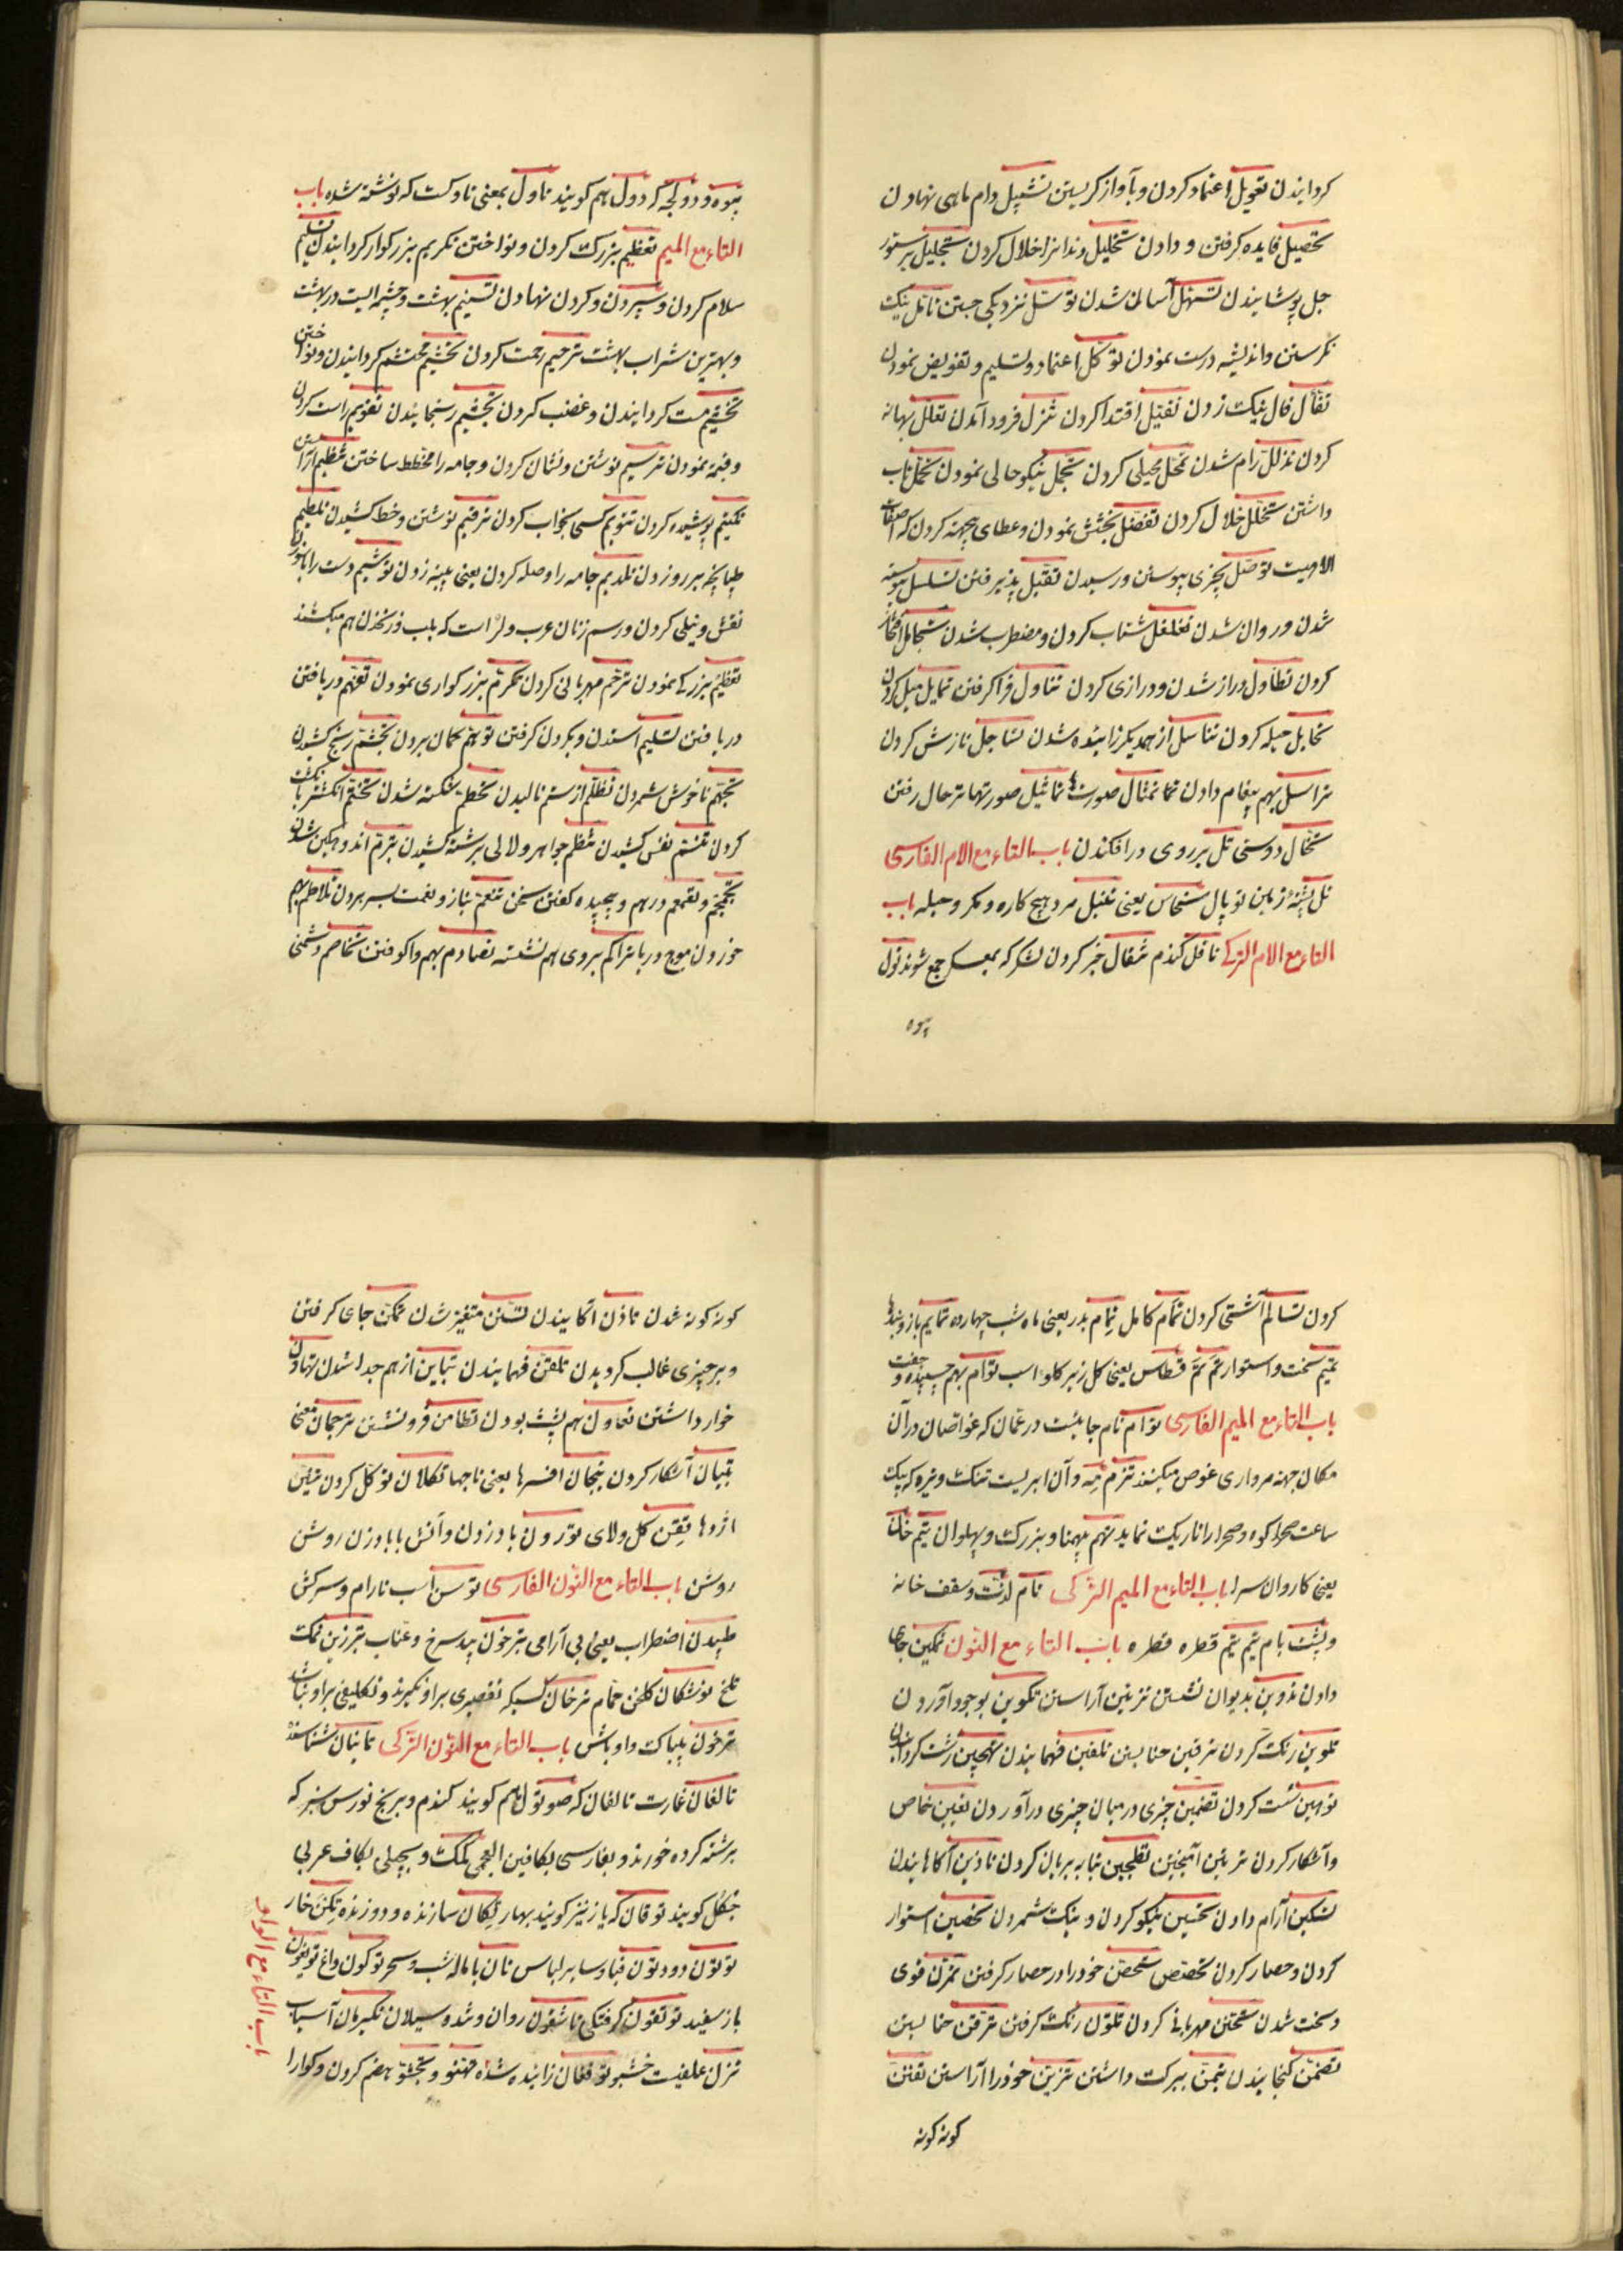 کردانیدن تعویل اعتماد کردن و بآواز کریستن تشبیل دام ماهی نهادن
تحصیل فایده کرفتن و دادن تخلیل دندانرا خلال کردن تجلیل بر ستور
جل پوشانیدن تسهل آسان شدن توسل نزدیکی جستن تأمل نیک
نکرستن و اندیشه درست نمودن توکل اعتماد و تسلیم و تفویض نمودن
تفأل فال نیک زدن تقبل اقتدا کردن تنزل فرود آمدن تعلل بهانه
کردن تذلل رام شدن تمحل محیلی کردن تجمل نیکو حالی نمودن تحمل تاب
داشتن تخلل خلال کردن تفضل بخشش نمودن و عطای بیجهته کردن که صفات
الاهیت توصل بچیزی پیوستن و رسیدن تقبل پذیرفتن تسلسل پیوسته
شدن و روان شدن تغلغل شتاب کردن و مضطرب شدن
کردن تطاول دراز شدن و درازی کردن تناول فرا کرفتن تمایل میل کردن
تحایل حیله کردن تناسل از همدیکر زائیده شدن تساجل نازش کردن
تراسل بهم پیغام دادن تمثال صورت تماثیل صورتها ترحال رفتن
تخال دوستی تل بر روی در افکندن باب التاء مع الام الفارسی
تل پشتهٔ زمین توپال نحاس یعنی تنبل مرد هیچ کاره و مکر و حیله باب
التاء مع الام الترکی تاقل کندم تنقال خبر کردن لشکر که بمعسکر جمع شوند تول
بیوه
بیوه و دولچه که دول هم کویند تاول بمعنی تاوکست که نوشته شده باب
التاء مع المیم تعظیم بزرک کردن و نواختن تکریم بزرکوار کردانیدن تسلیم
سلام کردن و سپردن و کردن نهادن تسنیم بهشت و چشمه ایست در بهشت
و بهترین شراب بهشت ترحیم رحمت کردن تحشیم محتشم کردانیدن و نواختن
کردانیدن و غضب کردن تجشیم رنجانیدن تقویم راست کردن
و قیمة نمودن ترسیم نوشتن و نشان کردن و جامه را مخطط ساختن تنظیم آراستن
تکتیم پوشیده کردن تنویم کسی بخواب کردن ترقیم نوشتن و خط کشیدن تلطیم
طپانچه بر رو زدن تلدیم جامه را وصله کردن یعنی پینه زدن توشیم دست را بسوزن
نقش و نیلی کردن و رسم زنان عرب و لر است که بلب و زنخدان هم میکشند
تعظیم بزرکی نمودن ترحم مهربانی کردن تکرم بزرکواری نمودن تفهم دریافتن
دریافتن تسلیم استدن و بکردن کرفتن توهم کمان بردن تجشم رنج کشیدن
تجهم ناخوش شمردن تظلم از ستم نالیدن تحطم شکسته شدن تختم انکشتر بانکشت
کردن تنسم نفس کشیدن تنظم جواهر و لالی برشته کشیدن تبرم اندوهکین شدن
تجمجم و تغمغم درهم و پیچیده کفتن سخن تنعم بناز و نعمت بسر بردن تلاطم بهم
خوردن موج دریا تراکم بروی هم نشسته تصادم بهم واکوفتن تخاصم دشمنی
کردن تسالم آشتی کردن تمام کامل تمام بدر یعنی ماه شب چهارده تمایم بازوبندها
تمیم سخت و استوار تم تم قطاس یعنی کل زیر کلو اسب توأم بهم چسپیده و جفت
باب التاء مع المیم الفارسی توام نام جائیست در عمان که غواصان در آن
مکان جهته مروارید غوص میکنند تزم مه و آن ابریست تنک و تیره که یک
ساعت صحرا کوه و صحرا را تاریک نماید تهم بیهمتا و بزرک و پهلوان تیم خان
یعنی کاروان سرا باب التاء مع المیم الترکی تام لذت و سقف خانه
و پشت بام تیم تیم قطره قطره باب التاء مع النون تمکین جای
دادن تدوین بدیوان نشستن تزیین آراستن تکوین بوجود آوردن
تلوین رنک کردن ترقین حنا بستن تلقین فهمانیدن تهجین زشت کردانیدن
توهین سست کردن تضمین چیزی در میان چیزی در آوردن تعیین خاص
و آشکار کردن تطجین بتابه بریان کردن تاذین آکاهانیدن
تسکین آرام دادن تحسین نیکو کردن و نیک شمردن تحصین استوار
کردن و حصار کردن تخصص تحصن خود را در حصار کرفتن تمرن قوی
و سخت شدن تحنن مهربانی کردن تلون رنک کرفتن ترقن حنا بستن
تضمن کنجانیدن تیمن ببرکت داشتن تزین خود را آراستن تفنن
کونه کونه
کونه کونه شدن تاذن آکاهیدن تسنن متغیر شدن تمکن جای کرفتن
و بر چیزی غالب کردیدن تلقن فهمانیدن تباین از هم جدا شدن تهاون
خوار داشتن تعاون هم پشت بودن تطامن فرو نشستن ترجمان معنی
تبیان آشکار کردن تیجان افسرها یعنی تاجها تکلان توکل کردن تنین
اژدها تقن کل و لای توردن باد زدن و آتش با باد زدن روشن
روشن باب التاء مع النون الفارسی توسن اسب نارام و سرکش
طپیدن اضطراب یعنی بی آرامی ترخون بید سرخ و عناب تبرزین نمک
تلخ تونشکان کلخن حمام ترخان کسیکه تقصیری بر او نکیرند و تکلیفی بر او نباشد
ترخون بیباک و اوباش باب التاء مع النون الترکی تانیان شناسنده
تالغان غارت تالقان که صوتول هم کویند کندم و برنج نورس سبز که
برشته کرده خورند و بفارسی بکافین العجمی کلک و بچهلی بکاف عربی
جنکل کویند توقان که یاز نیز کویند بهار تیکان سازنده و دوزنده تکن خار
توتون دود تون قبا و سایر لباس تان باماله شب و سحر توکون داغ تویغون
باز سفید توتقون کرفتکی تاشقون روان و شد و سیلان تکیرمان آسیاب
تزن علفیست خشبو توققان زائیده شده تهنو و تجشو هضم کردن و کوارا
باب التاء مع الواو